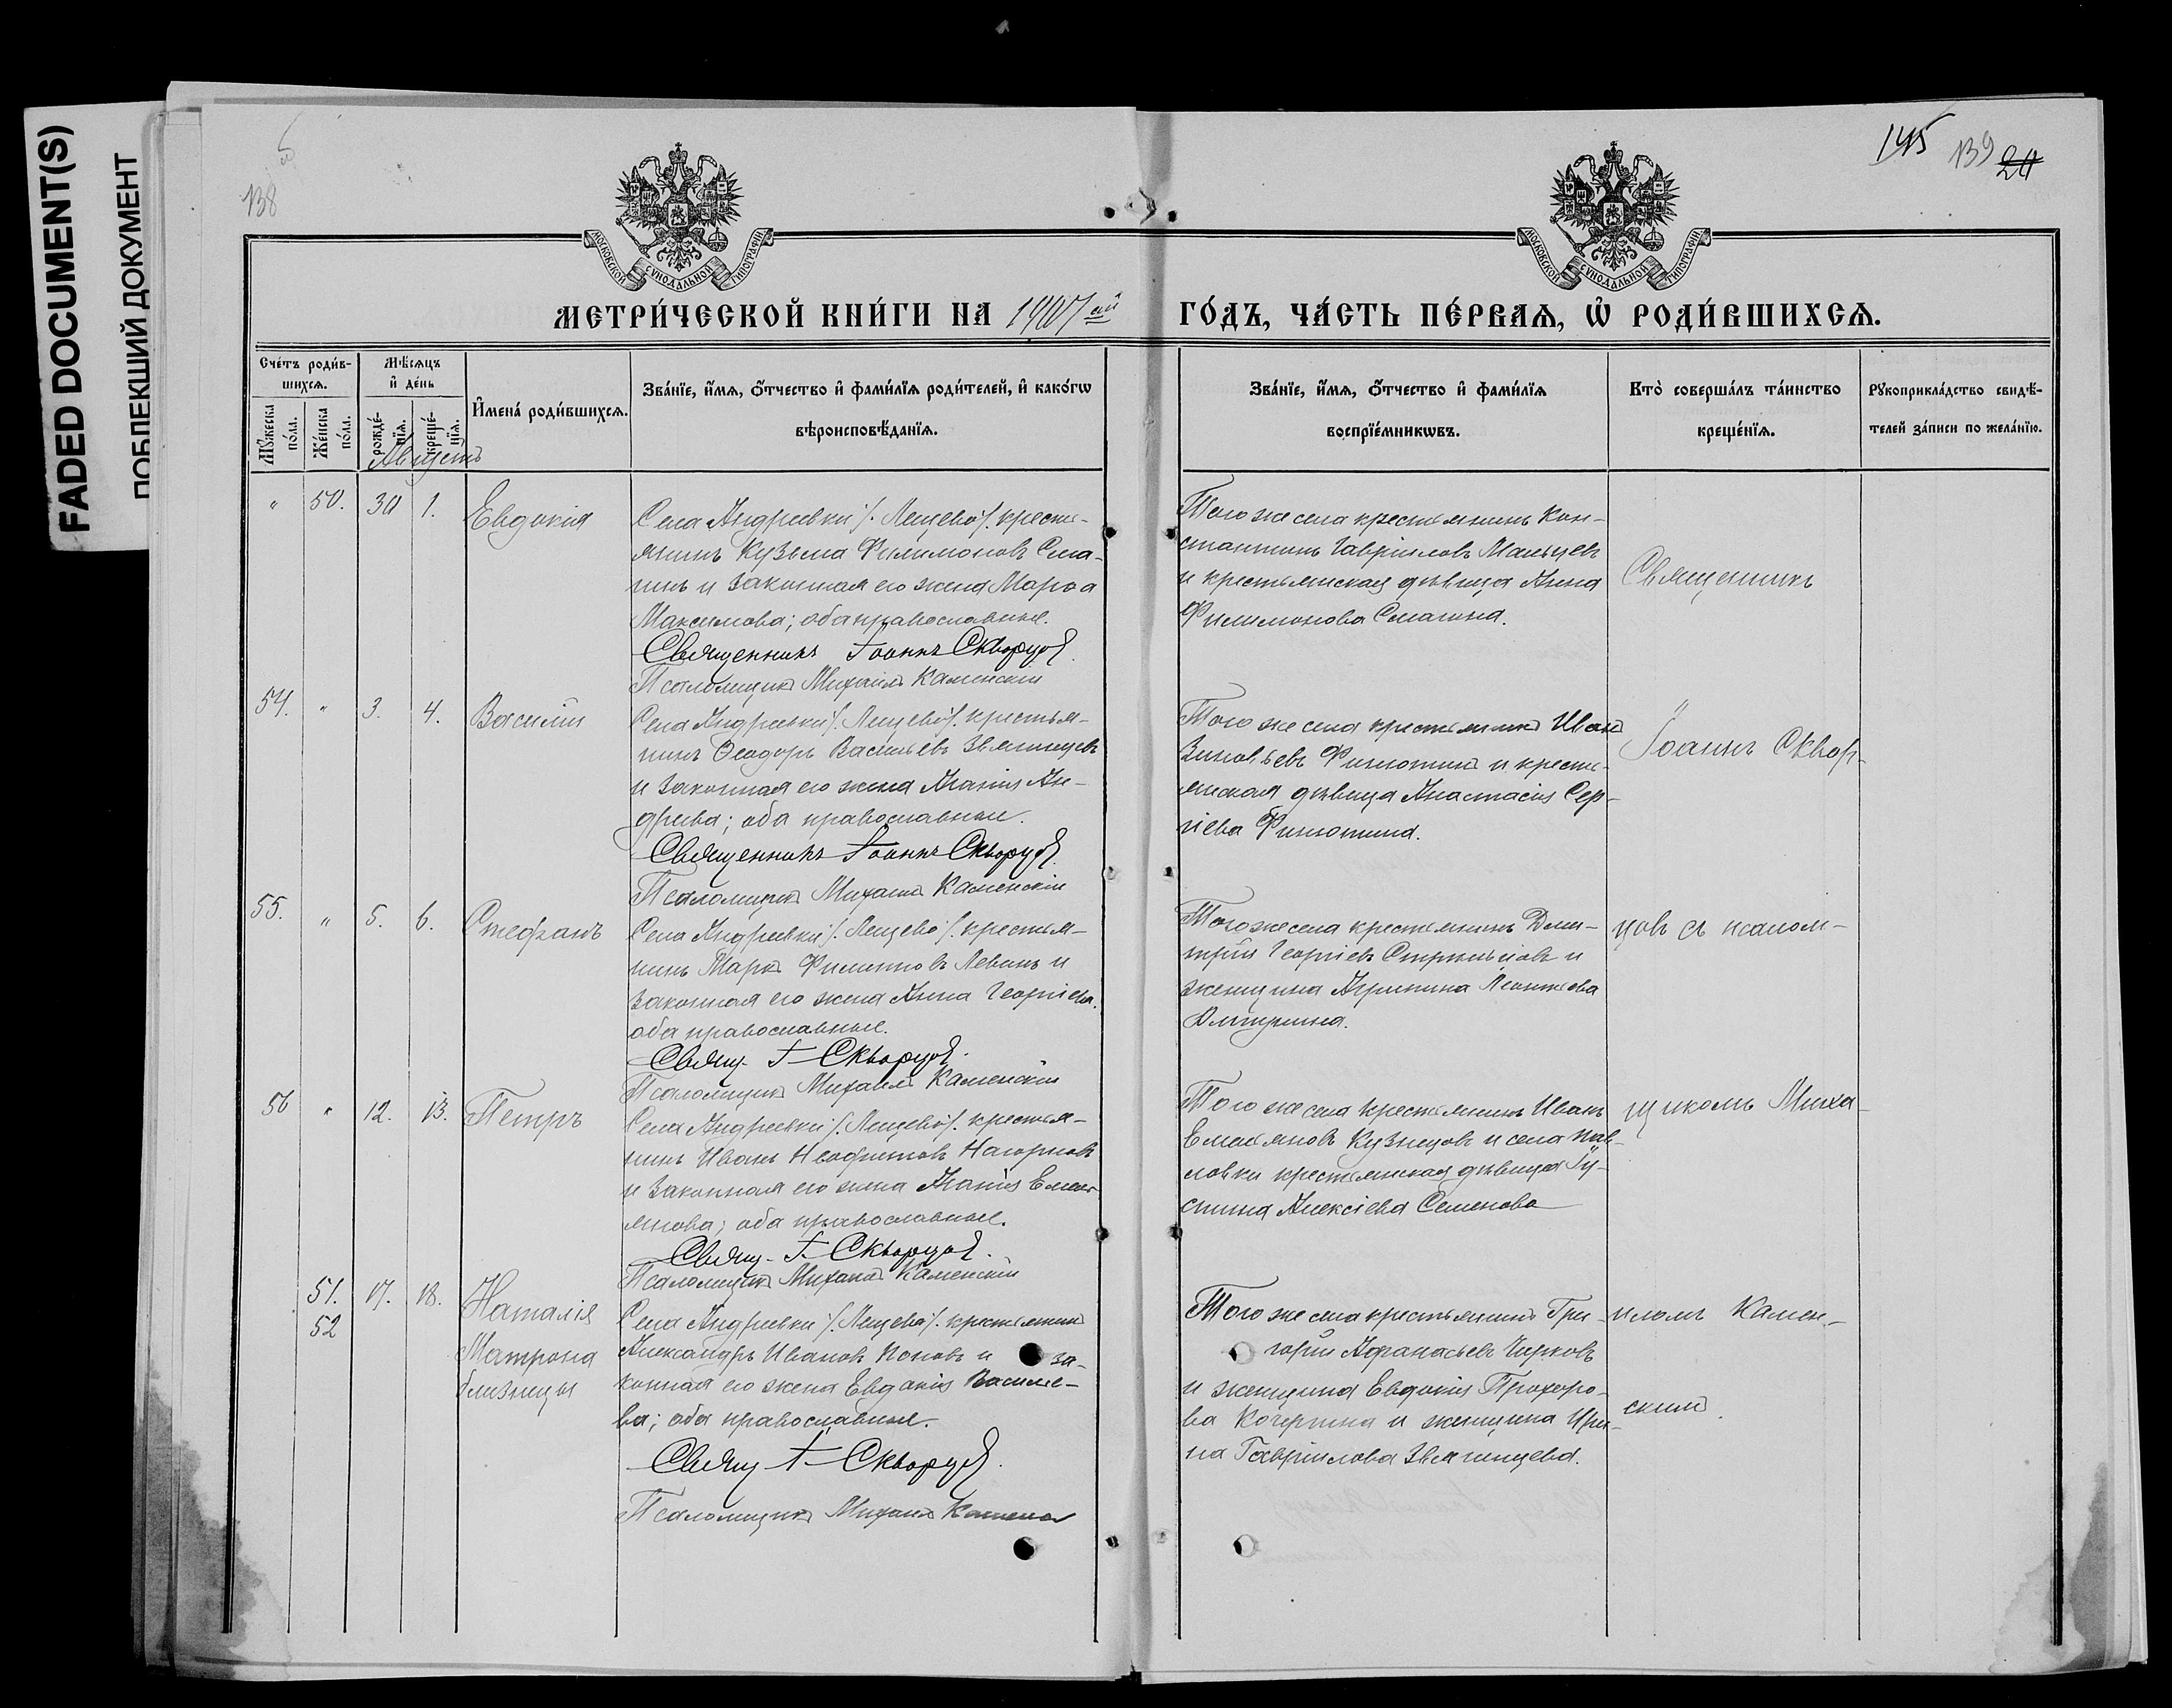 FADED DOCUMENT(S)
ПОБЛЕКШИЙ ДОКУМЕНТ
138
145 139 24
МОСКОВСКОЙ СѴНОДАЛЬНОЙ ТИПОГРАФІИ
МОСКОВСКОЙ СѴНОДАЛЬНОЙ ТИПОГРАФІИ
МЕТРИ́ЧЕСКОЙ КНИ́ГИ НА 1907 ый ГО́ДЪ, ЧА́СТЬ ПЕ́РВАѦ, Ѡ҆ РОДИ́ВШИХСѦ.
Сче́тъ роди́в-
шихсѧ.
Мꙋ́жеска по́ла.
Же́нска по́ла.
Мѣ́сѧцъ
и҆ де́нь
рожде́-
нїѧ.
креще́-
нїѧ.
И҆мена̀ роди́вшихсѧ.
Зва́нїе, и҆́мѧ, ѻ҆́тчество и҆ фами́лїѧ роди́телей, и҆ како́гѡ
вѣроисповѣ́данїѧ.
Зва́нїе, и҆́мѧ, ѻ҆́тчество и҆ фами́лїѧ
воспрїе́мникѡвъ.
Кто̀ соверша́лъ та́инство
креще́нїѧ.
Рꙋкоприкла́дство свидѣ́-
телей за́писи по жела́нїю.
Августъ
" 50. 30 1. Евдокія
Села Андреевки /. Лещево /. кресть-
янинъ Кузьма Филимоновъ Сма-
гинъ и законная его жена Марѳа
Максимова; оба православные.
Священникъ Іоаннъ Скворцовъ.
Псаломщикъ Михаилъ Каменскій
Того же села крестьянинъ Кон-
стантинъ Гавріиловъ Мальцевъ
и крестьянская дѣвица Анна
Филимонова Смагина.
Священникъ
54. " 3. 4. Василій
Села Андреевки /. Лещево /. крестья-
нинъ Ѳеодоръ Васильевъ Звягинцевъ
и законная его жена Агаѳія Ан-
дреева; оба православные.
Священникъ Іоаннъ Скворцовъ.
Псаломщикъ Михаилъ Каменскій
Того же села крестьянинъ Иванъ
Зиновьевъ Финютинъ и кресть-
янская дѣвица Анастасія Сер-
гіева Финютина.
Іоаннъ Сквор-
55. " 5. 6. Стефанъ
Села Андреевки /. Лещево /. крестья-
нинъ Маркъ Филипповъ Левинъ и
законная его жена Анна Георгіева.
оба православные.
Свящ. І. Скворцовъ.
Псаломщикъ Михаилъ Каменскій
Того же села крестьянинъ Дми-
трій Георгіевъ Стрѣльцовъ и
женщина Агрипина Леонтіева
цовъ съ псалом-
56 " 12. 13. Петръ
Села Андреевки /. Лещево /. крестья-
нинъ Иванъ Неофитовъ Нагорновъ
и законная его жена Агаѳія Емель-
янова; оба православные.
Свящ. І. Скворцовъ.
Псаломщикъ Михаилъ Каменскій
Того же села крестьянинъ Иванъ
Емельяновъ Кузнецовъ и села Пав-
ловки крестьянская дѣвица Іу-
стина Алексіева Семенова
щикомъ Миха-
51. 17. 18. Наталія
52
Матрона
близнецы
Села Андреевки /. Лещево /. крестьянинъ
Александръ Ивановъ Поповъ и за-
конная его жена Евдокія Василье-
ва; оба православные.
Свящ І. Скворцовъ.
Псаломщикъ Михаилъ Каменс
Того же села крестьянинъ Гри-
горій Аѳанасьевъ Чирковъ
и женщина Евдокія Прохоро-
ва Кочергина и женщина Ири-
на Гавріилова Звягинцева.
иломъ Камен-
скимъ.